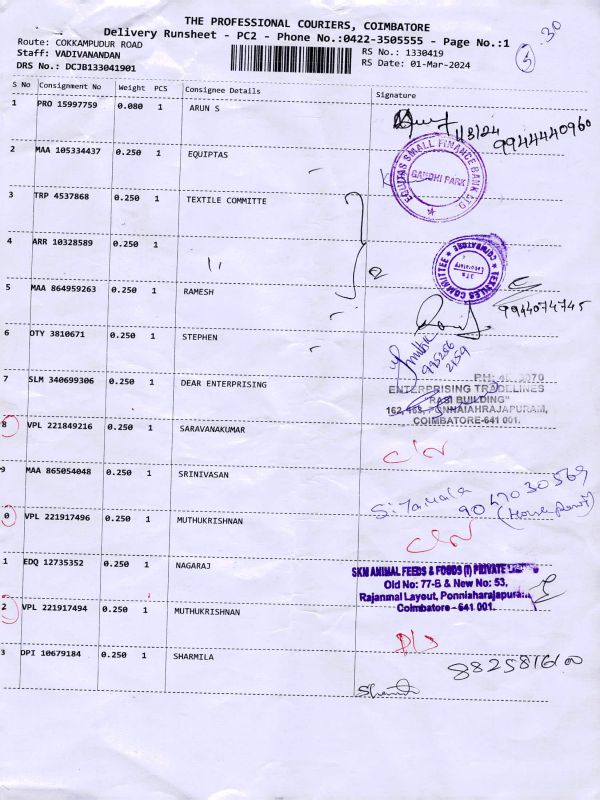 THE PROFESSIONAL COURIERS, COIMBATORE
Delivery Runsheet - PC2 - Phone No.:0422-3505555 - Page No.:1
Route: COKKAMPUDUR ROAD
Staff: VADIVANANDAN
DRS No.: DCJB133041901
RS No.: 1330419
RS Date: 01-Mar-2024
5 .30
S No Consignment No Weight PCS Consignee Details Signature
1 PRO 15997759 0.080 1 ARUN S
1/3/24 9944440960
2 MAA 105334437 0.250 1 EQUIPTAS
EQUITAS SMALL FINANCE BANK LTD
GANDHI PARK
3 TRP 4537868 0.250 1 TEXTILE COMMITTE
4 ARR 10328589 0.250 1 "
TEXTILES COMMITTEE COIMBATORE
Laboratory
5 MAA 864959263 0.250 1 RAMESH
9944074745
6 OTY 3810671 0.250 1 STEPHEN
995256
2159
7 SLM 340699306 0.250 1 DEAR ENTERPRISING
ENTERPRISING TRADELINES
"RASI BUILDING"
PONNAIAHRAJAPURAM,
COIMBATORE-641 001.
8 VPL 221849216 0.250 1 SARAVANAKUMAR
9 MAA 865054048 0.250 1 SRINIVASAN
9047030569
0 VPL 221917496 0.250 1 MUTHUKRISHNAN
1 EDQ 12735352 0.250 1 NAGARAJ
SKM ANIMAL FEEDS & FOODS (I) PRIVATE
Old No: 77-B & New No: 53,
Rajanmal Layout, Ponniaharajapuram,
Coimbatore - 641 001.
2 VPL 221917494 0.250 1 MUTHUKRISHNAN
3 DPI 10679184 0.250 1 SHARMILA